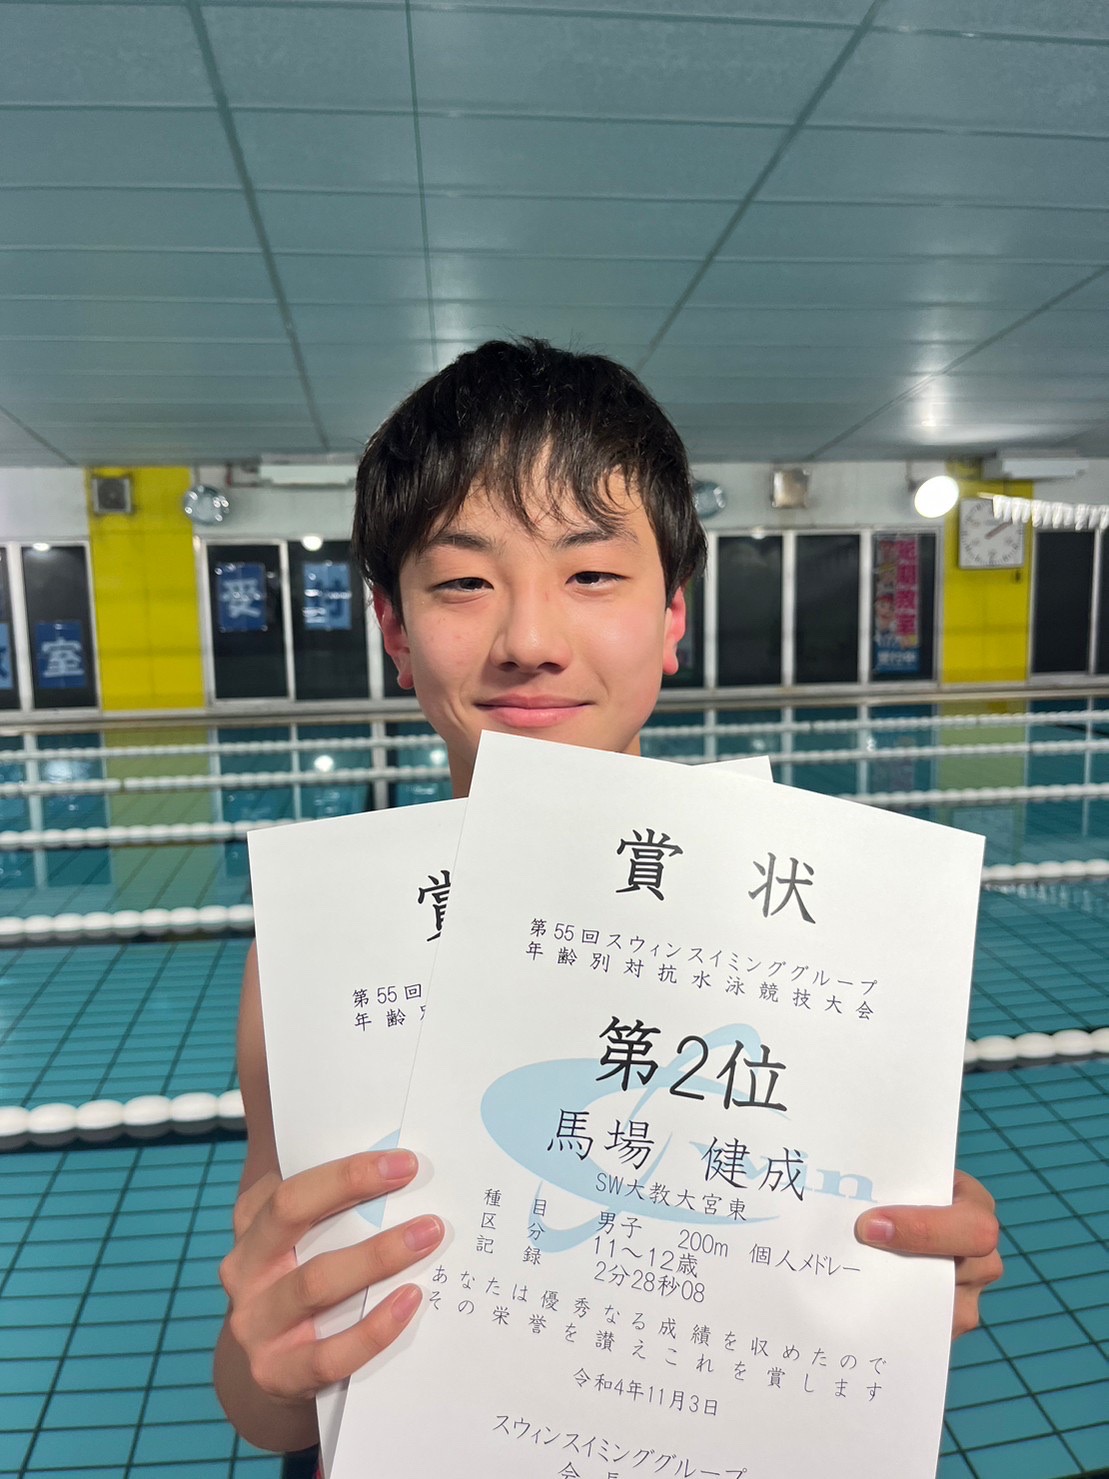 受付
室
短期教室
受付中
賞
第55回
年齢
賞 状
第55回スウィンスイミンググループ
年齢別対抗水泳競技大会
第2位
馬場 健成
win
SW大教大宮東
種目 男子 200m 個人メドレー
区分 11〜12歳
記録 2分28秒08
あなたは優秀なる成績を収めたので
その栄誉を讃えこれを賞します
令和4年11月3日
スウィンスイミンググループ
会長